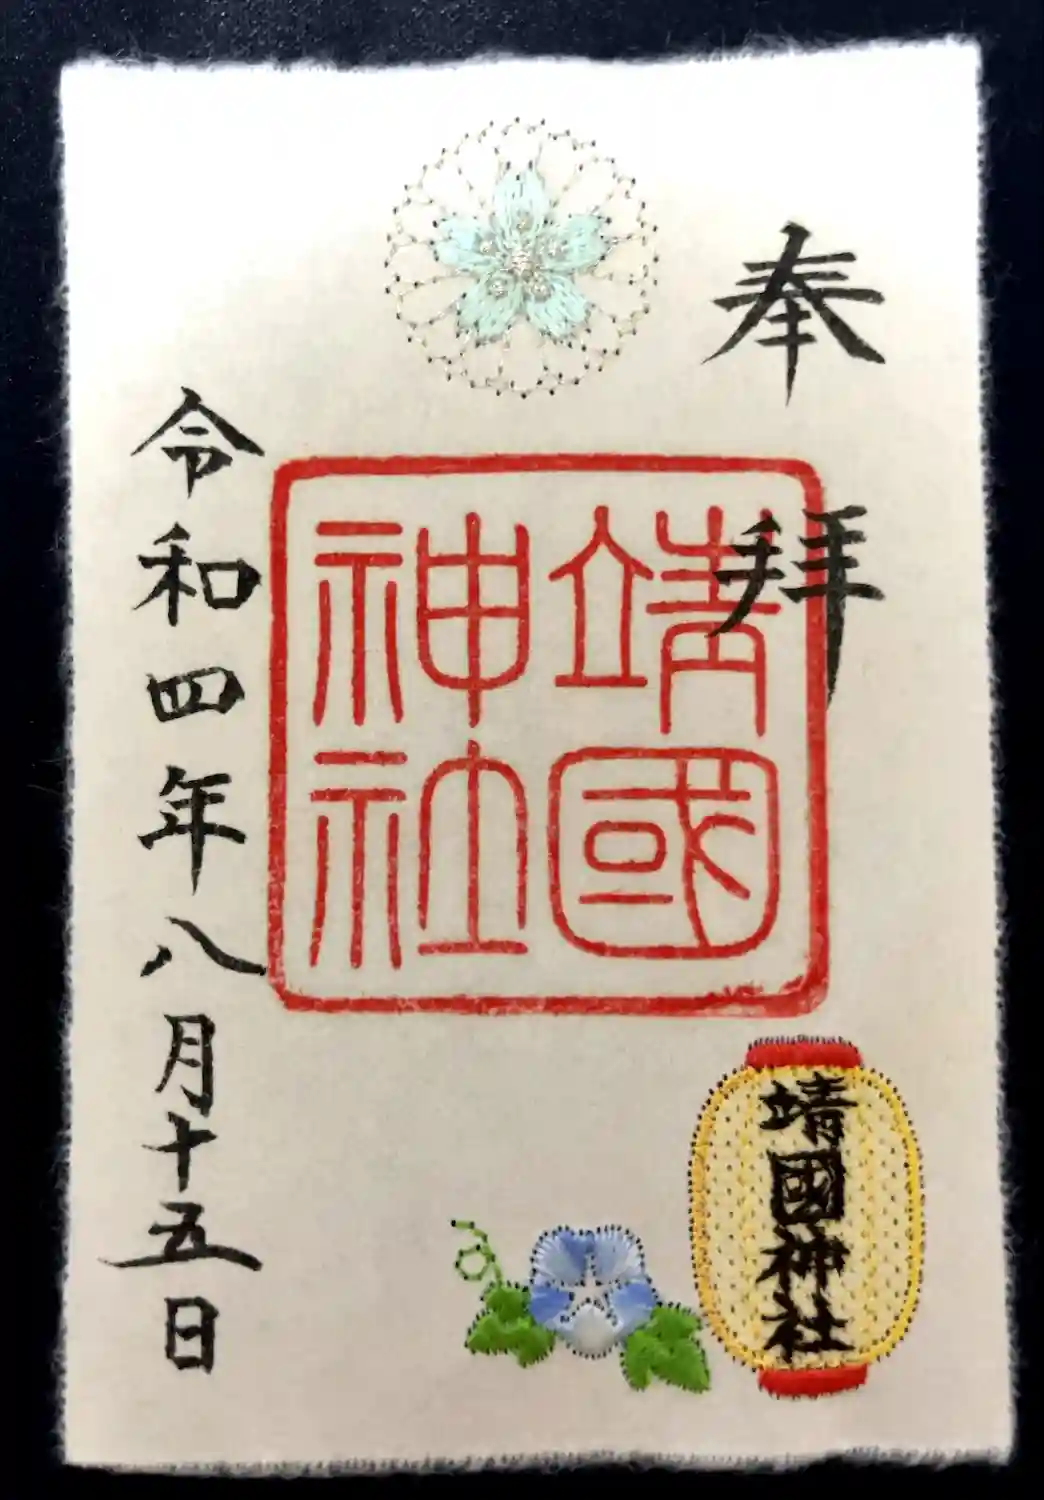 奉拝
靖國
神社
令和四年八月十五日
靖國神社